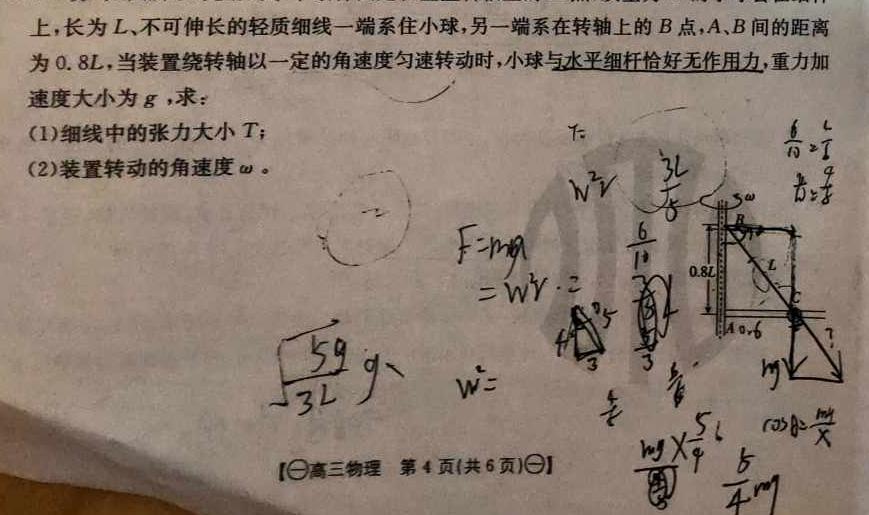 上,长为 L、不可伸长的轻质细线一端系住小球,另一端系在转轴上的 B 点,A、B 间的距离
为 0.8L,当装置绕转轴以一定的角速度匀速转动时,小球与水平细杆恰好无作用力,重力加
速度大小为 g ,求:
(1)细线中的张力大小 T;
(2)装置转动的角速度 ω 。
T=
W²r
3L/5
6/10
F=ma
=W²r
W²=
√5g/3L
ω
B
L
0.8L
C
A 0.6
mg
4 5
3
cosθ=mg/X
5/4 mg
【㊀高三物理 第 4 页(共 6 页)㊀】